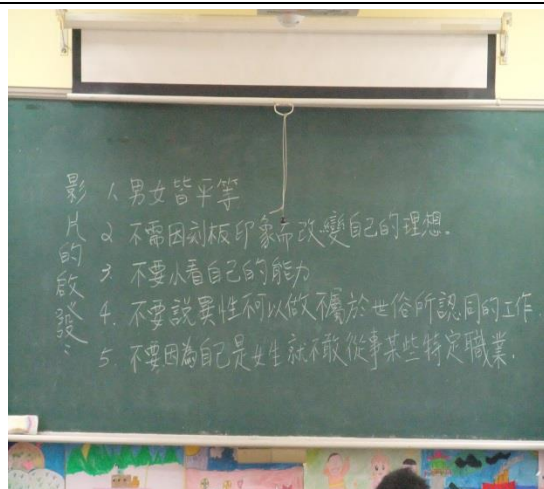 影片的啟發：
1. 男女皆平等
2. 不需因刻板印象而改變自己的理想。
3. 不要小看自己的能力
4. 不要說異性不可以做不屬於世俗所認同的工作.
5. 不要因為自己是女生就不敢從事某些特定職業.